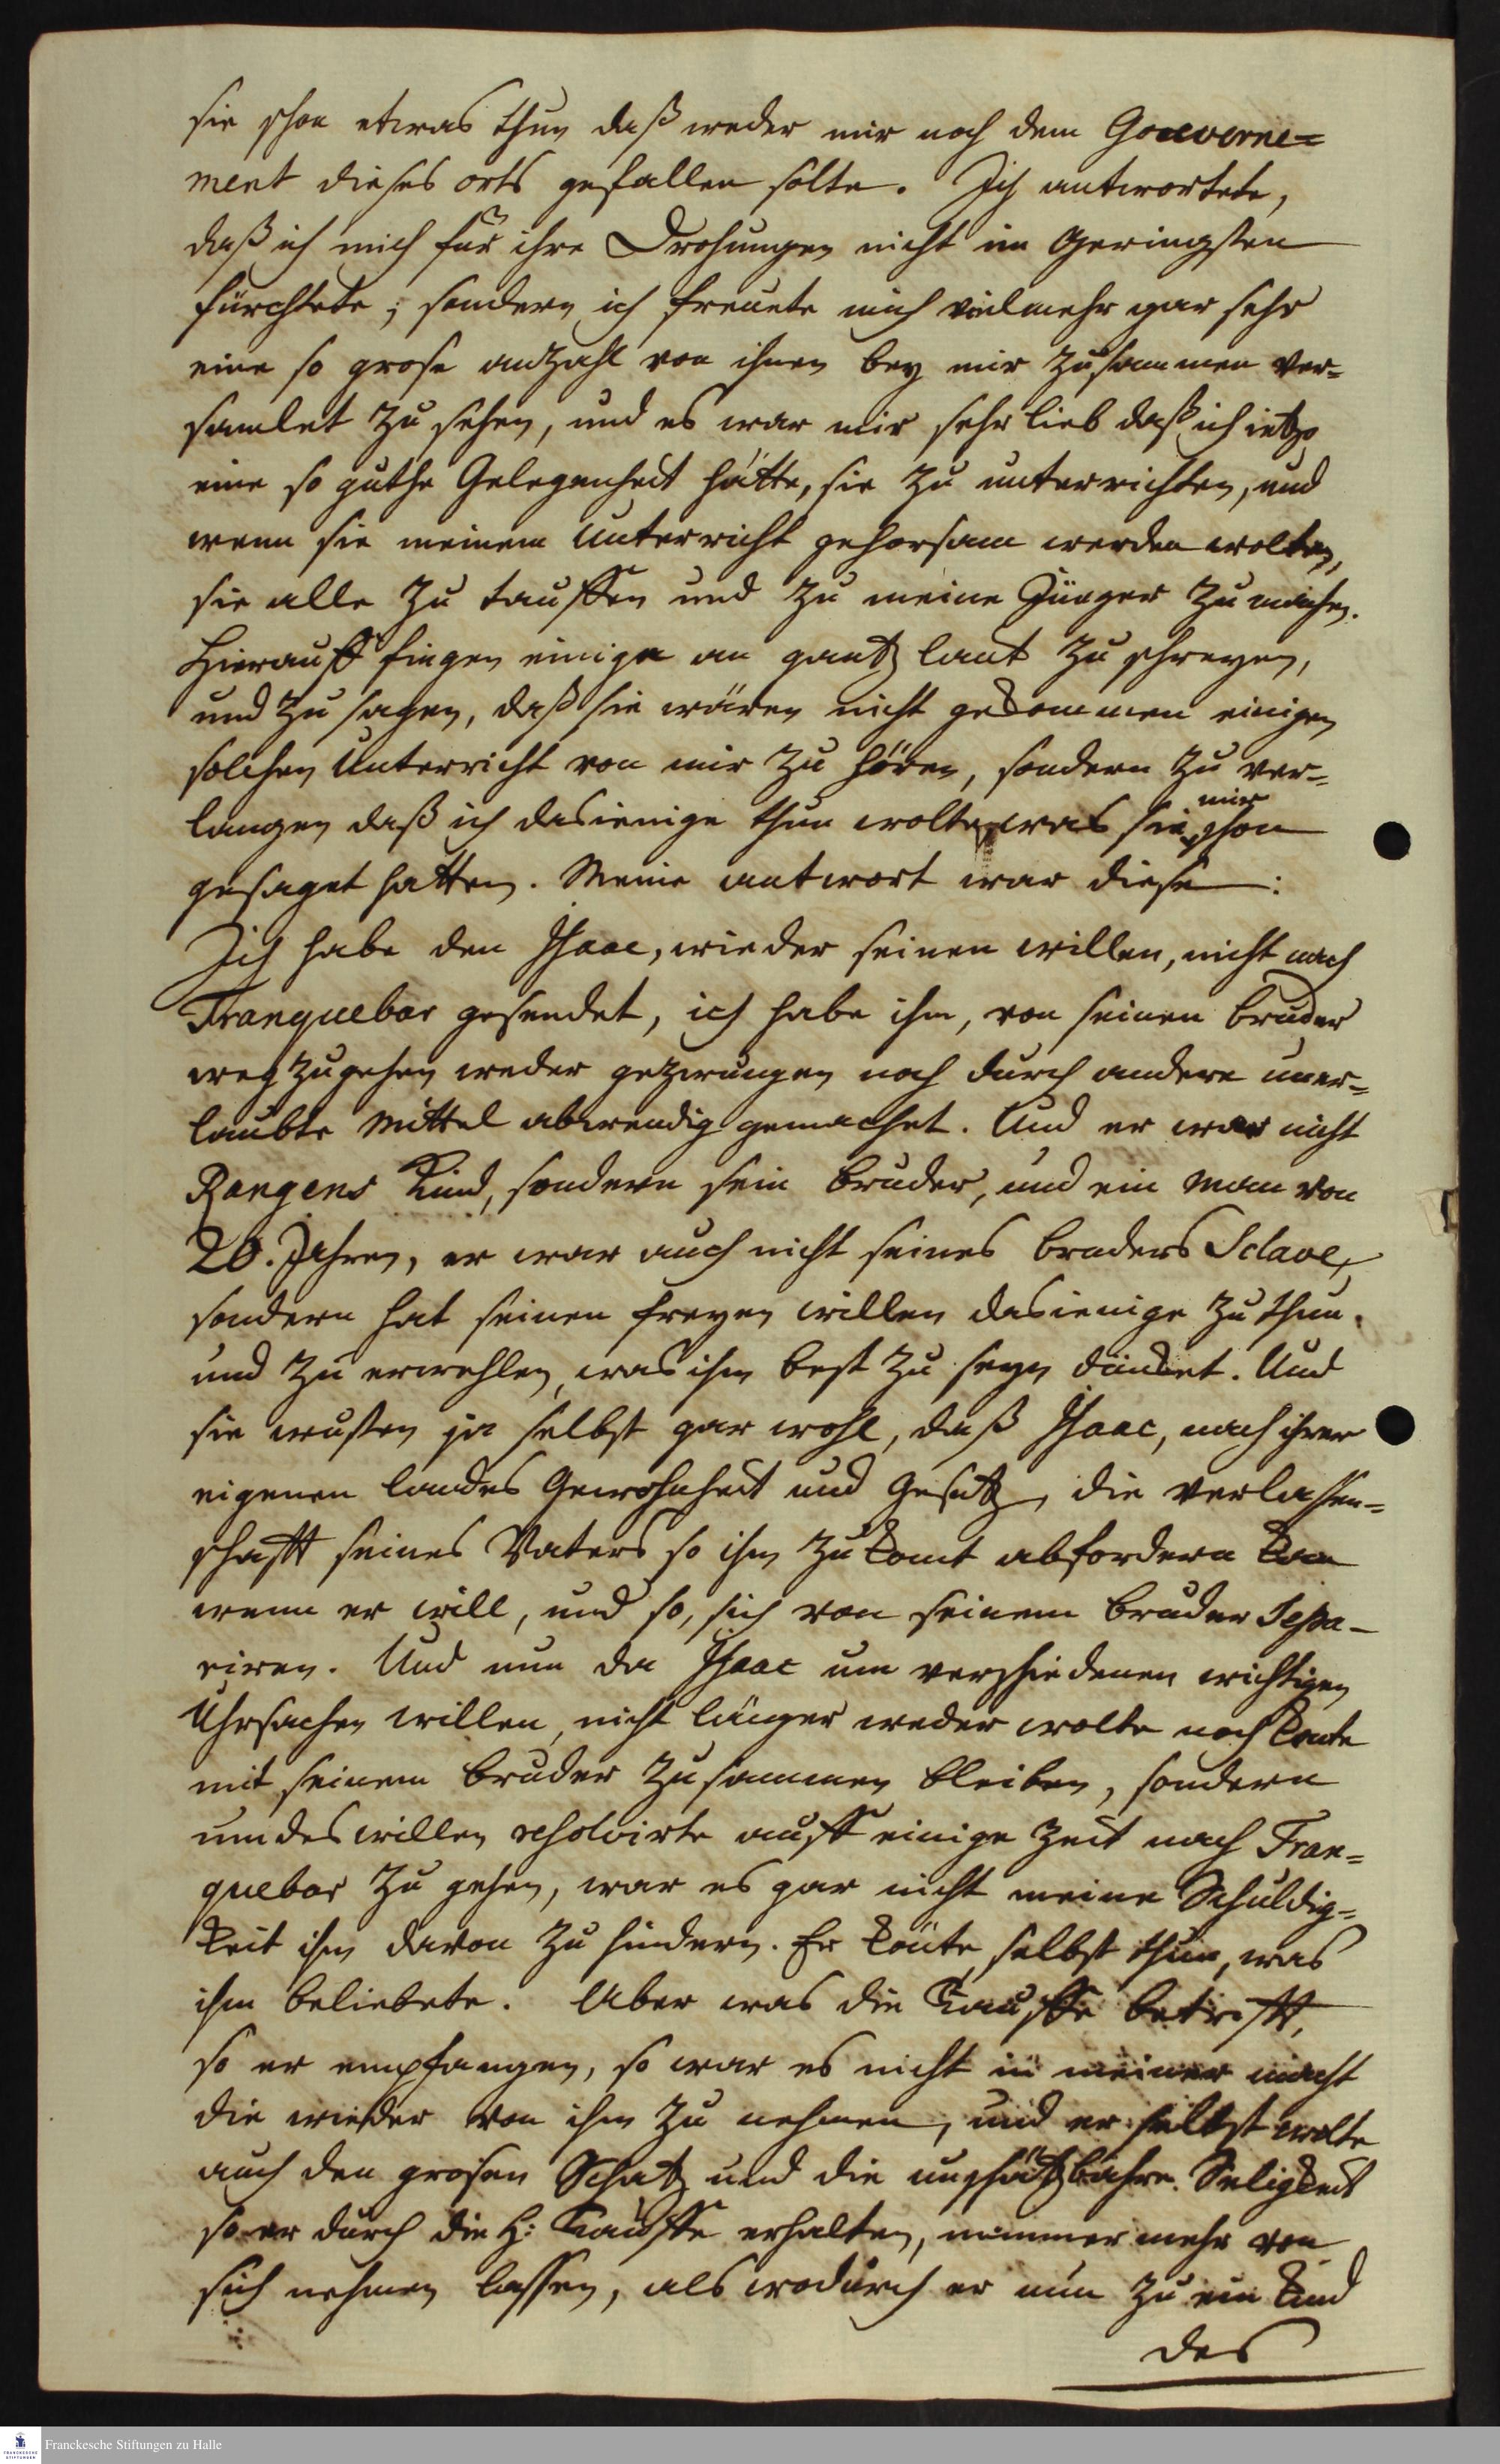 sie schon etwas thun daß weder mir noch dem Gouverne=
ment dieses orts gefallen solte. Ich antwortete,
daß ich mich für ihre Drohungen nicht im Geringsten
fürchtete; sondern ich freuete mich vielmehr gar sehr
eine so grose anzahl von ihnen bey mir zusammen ver=
samlet zu sehen, und es war mir sehr lieb daß ich ietzo
eine so guthe Gelegenheit hätte, sie zu unterrichten, und
wenn sie meinem Unterricht gehorsam werden wolten,
sie alle zu tauffen und zu meine Jünger zu machen.
Hierauff fingen einige an gantz laut zu schreyen,
und zu sagen, daß sie wären nicht gekommen einigen
solchen Unterricht von mir zu hören, sondern zu ver=
langen daß ich dasienige thun wolte, was sie mir schon
gesaget hatten. Meine antwort war diese:
Ich habe den Isaac, wieder seinen willen, nicht nach
Tranquebar gesendet, ich habe ihm, von seinen bruder
weg zugehen weder gezwungen noch durch andere uner=
laubte Mittel abwendig gemachet. Und er war nicht
Rangens Kind, sondern sein bruder, und ein Man von
20. Jahren, er war auch nicht seines bruders Sclave,
sondern hat seinen freyen willen dasienige zu thun
und zu erwehlen, was ihm best zu seyn däucket. Und
sie wusten ja selbst gar wohl, daß Isaac, nach ihrer
eigenen landes Gewohnheit und Gesetz, die Verlassen=
schafft seines Vaters so ihm zukomt abfordern kan
wenn er will, und so, sich von seinem bruder Sepa-
riren. Und nun da Isaac um verschiedenen wichtigen
Uhrsachen willen, nicht länger weder wolte noch konte
mit seinem bruder zusammen bleiben, sondern
um des willen resolvirte auff einige Zeit nach Tran=
quebar zu gehen, war es gar nicht meine Schuldig=
keit ihn davon zu hindern. Er könte selbst thun, was
ihm beliebete. Aber was die Tauffe betrifft,
so er empfangen, so war es nicht in meiner macht
die wieder von ihm zu nehmen, und er selbst wolte
auch den grosen Schatz und die unschätzbahre Seligkeit
so er durch die H: Tauffe erhalten, nimmer mehr von
sich nehmen lassen, als wodurch er nun zu ein Kind
des
Franckesche Stiftungen zu Halle